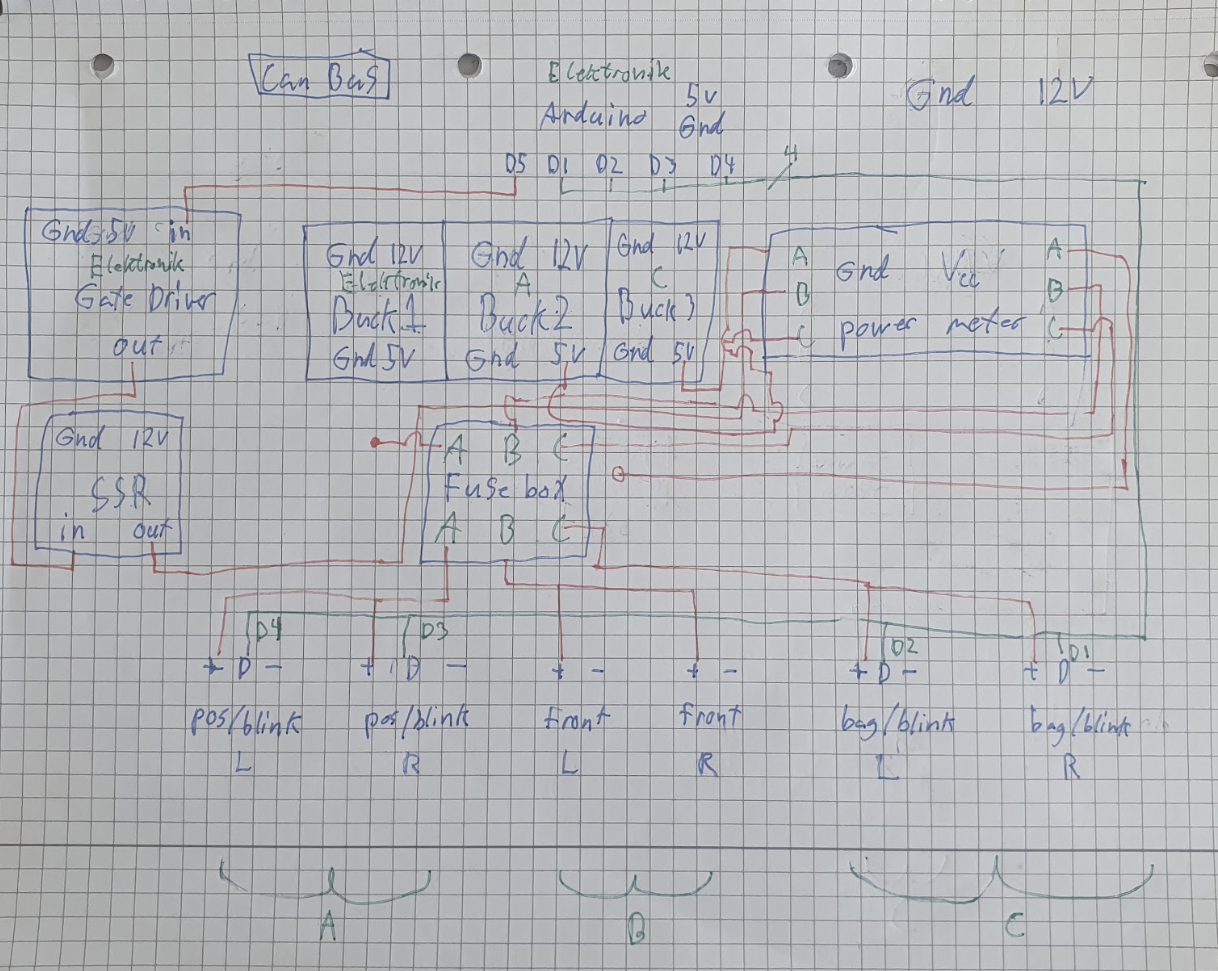 Can BuS
Elektronik
Arduino
5v
Gnd
Gnd 12V
D5 D1 D2 D3 D4
4
Gnd 5V in
Elektronik
Gate Driver
out
Gnd 12V
Elektronik
Buck 1
Gnd 5V
Gnd 12V
A
Buck 2
Gnd 5V
Gnd 12V
C
Buck 3
Gnd 5V
A A
Gnd Vcc
B B
C power meter C
Gnd 12V
SSR
in out
A B C
Fuse box
A B C
D4 D3 D2 D1
+ D - + D - + - + - + D - + D -
pos/blink pos/blink front front bag/blink bag/blink
L R L R L R
A B C